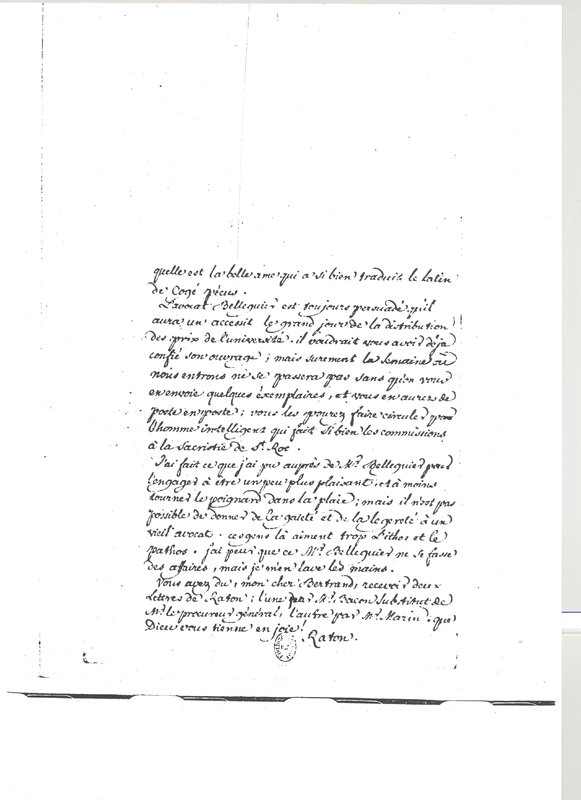 quelle est la belle ame qui a si bien traduit le latin
de Cogé pécus.
L'avocat Bellequier est toujours persuadé qu'il
aura un accessit le grand jour de la distribution
des prix de l'université. il voudrait vous avoir déja
confié son ouvrage; mais surement la semaine où
nous entrons ne se passera pas sans qu'on vous
en envoie quelques éxemplaires, et vous en aurez de
poste en poste; vous les pourez faire circuler par
l'homme intelligent qui fait si bien les commissions
à la Sacristie de St. Roc.
J'ai fait ce que j'ai pu auprès de Mr. Bellequier pour
l'engager à être un peu plus plaisant, et à moins
tourner le poignard dans la plaie; mais il n'est pas
possible de donner de la gaieté et de la legereté à un
vieil avocat. ces gens là aiment trop l'ithos et le
pathos. j'ai peur que ce Mr. Bellequier ne se fasse
des affaires, mais je m'en lave les mains.
Vous avez du, mon cher Bertrand, recevoir deux
Lettres de Raton; l'une par Mr. Bacon Substitut de
Mr. le procureur général, l'autre par Mr. Marin. que
Dieu vous tienne en joie!
Raton.